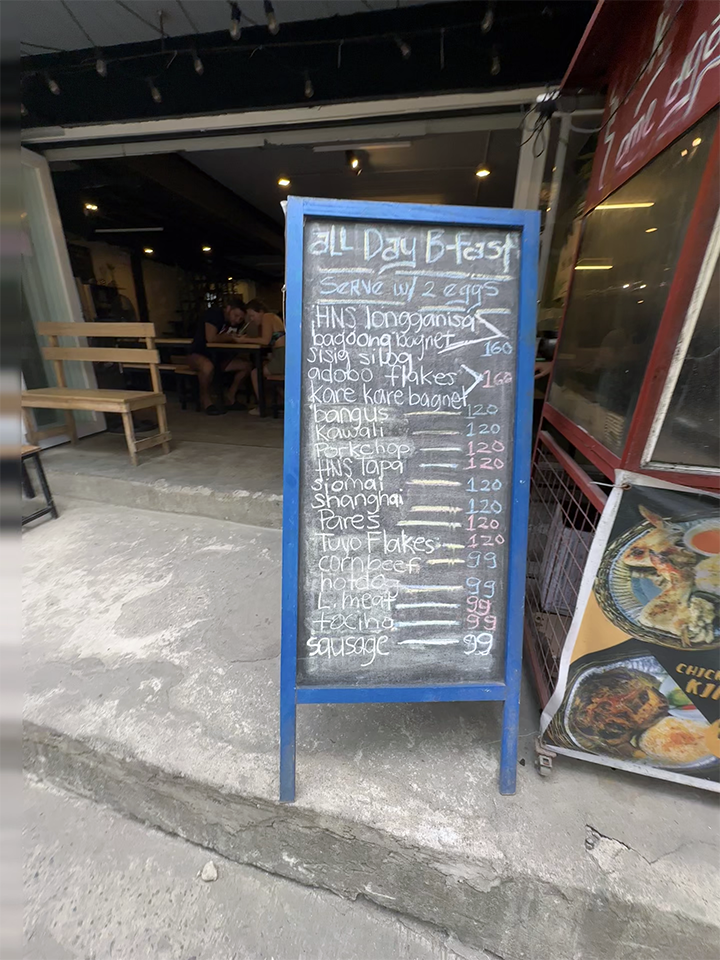 all Day B-fast
Serve w/ 2 eggs
HNS longganisa
bagoong bagnet 160
sisig silog
adobo flakes 160
kare kare bagnet
bangus 120
Kawali 120
Porkchop 120
HNS Tapa 120
siomai 120
shanghai 120
Pares 120
Tuyo Flakes 120
cornbeef 99
hotdog 99
L. meat 99
tocino 99
sausage 99
CHIC
KI
ome